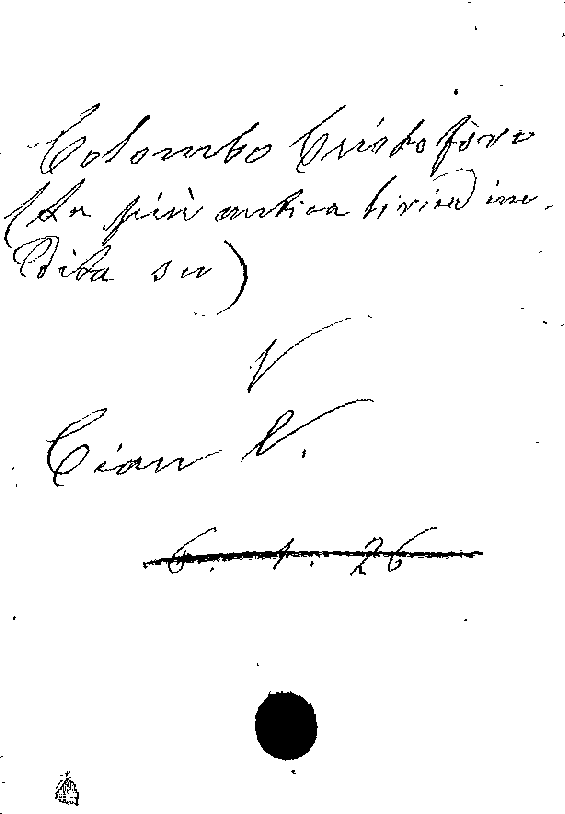 Colombo Cristoforo
(La più antica lirica ine-
dita su)
V
Cian V.
6. 1. 26